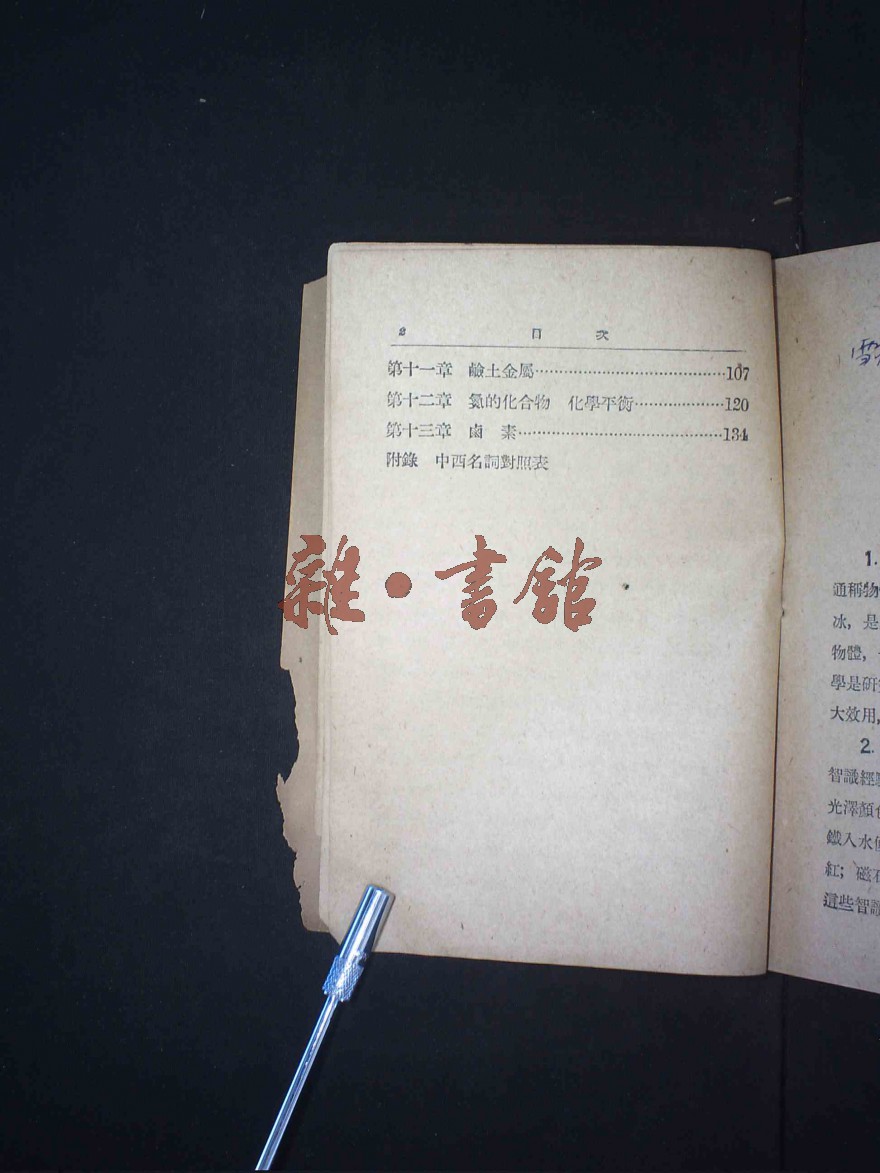 2 目 次
第十一章 鹼土金屬……………………………107
第十二章 氮的化合物 化學平衡………………120
第十三章 鹵 素………………………………134
附錄 中西名詞對照表
雜·書館
1.
通稱物
冰，是
物體，
學是研
大效用，
2.
智識經
光澤顏
鐵入水
紅；磁石
這些智識